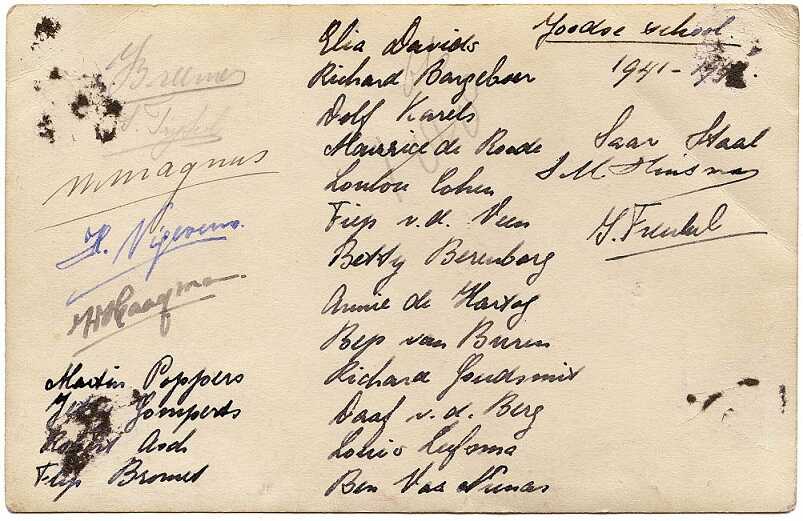 Joodse school.
1941 -
Elia Davids
Richard Bargeboer
Dolf Karels
Maurice de Roode
Loulou Cohen
Fiep v.d. Veen
Betty Berenborg
Annie de Hartog
Bep van Buren
Richard Goudsmit
Daaf v.d. Berg
Louis
Ben Vas Nunes
Saar Staal
S M
S. Frenkel
Breemer
M Magnus
H. Vigeveno.
H Haagman.
Martin Poppers
Gomperts
Robert Asch
Flip Bromet